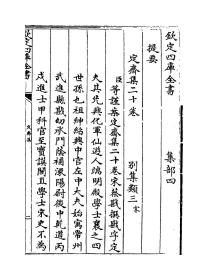 欽定四庫全書　集部四
提要
定齋集二十卷　別集類三宋
臣等謹案定齋集二十卷宋蔡戡撰戡字定
夫其先興化軍仙遊人端明殿學士襄之四
世孫也祖紳紹興中官左中大夫始寓常州
武進縣戡初承門蔭補溧陽尉後中乾道丙
戌進士甲科官至寶謨閣直學士宋史不為